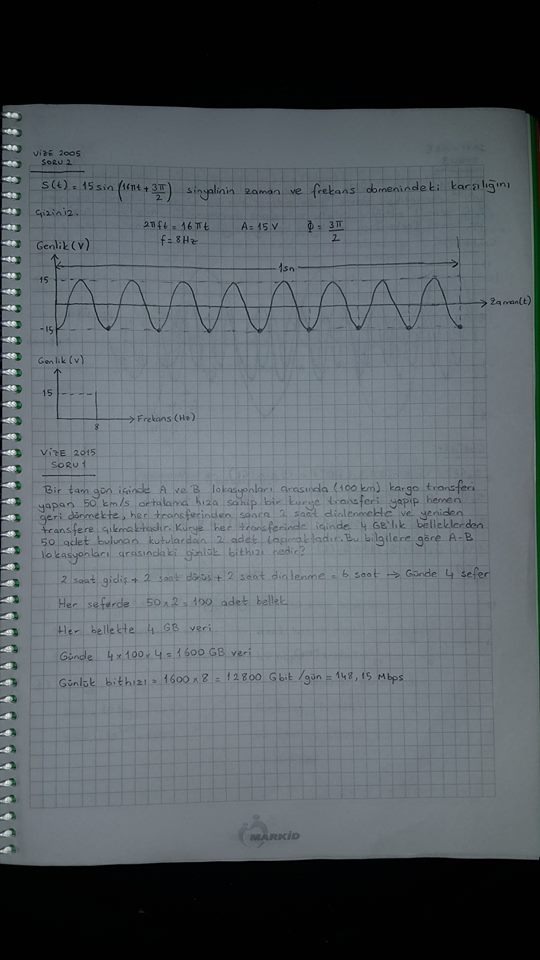 VİZE 2005
SORU 2
S(t) = 15 sin (16πt + 3π/2) sinyalinin zaman ve frekans domenindeki karşılığını
çiziniz.
2πft = 16πt A = 15 V Φ = 3π/2
f = 8 Hz
Genlik (V)
1sn
15
Zaman(t)
-15
Genlik (V)
15
8
Frekans (Hz)
VİZE 2015
SORU 1
Bir tam gün içinde A ve B lokasyonları arasında (100 km) kargo transferi
yapan 50 km/s ortalama hıza sahip bir kurye transferi yapıp hemen
geri dönmekte, her transferinden sonra 2 saat dinlenmekte ve yeniden
transfere çıkmaktadır. Kurye her transferinde içinde 4 GB'lık belleklerden
50 adet bulunan kutulardan 2 adet taşımaktadır. Bu bilgilere göre A-B
lokasyonları arasındaki günlük bithızı nedir?
2 saat gidiş + 2 saat dönüş + 2 saat dinlenme = 6 saat → Günde 4 sefer
Her seferde 50 x 2 = 100 adet bellek
Her bellekte 4 GB veri
Günde 4 x 100 x 4 = 1600 GB veri
Günlük bithızı = 1600 x 8 = 12800 Gbit /gün = 148,15 Mbps
MARKİD